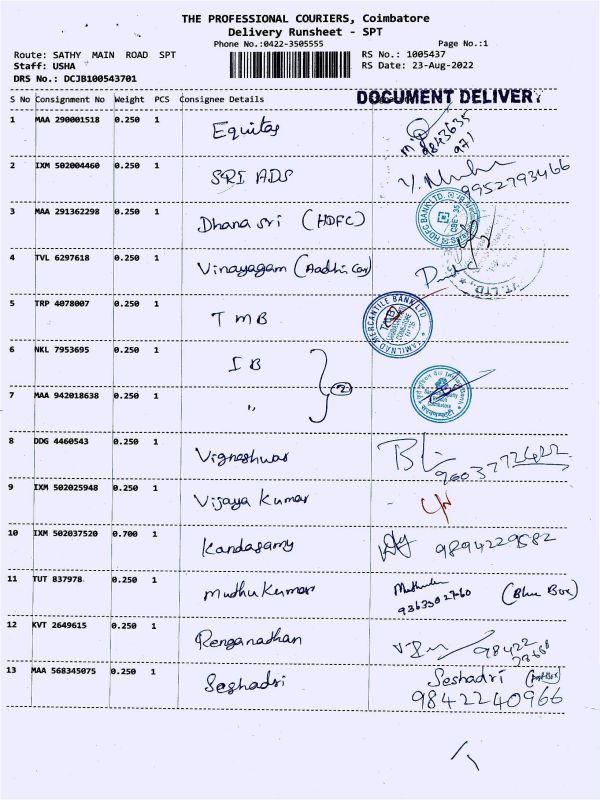 THE PROFESSIONAL COURIERS, Coimbatore
Delivery Runsheet - SPT
Phone No.:0422-3505555 Page No.:1
Route: SATHY MAIN ROAD SPT RS No.: 1005437
Staff: USHA RS Date: 23-Aug-2022
DRS No.: DCJB100543701
S No Consignment No Weight PCS Consignee Details DOCUMENT DELIVERY
1 MAA 290001518 0.250 1 Equitas
9843635
971
2 IXM 502004460 0.250 1 SRI ADS 9952793466
3 MAA 291362298 0.250 1 Dhana sri (HDFC) HDFC BANK LTD.
4 TVL 6297618 0.250 1 Vinayagam (Aadhi Car)
5 TRP 4078007 0.250 1 TMB TAMILNAD MERCANTILE BANK LTD
6 NKL 7953695 0.250 1 IB
(2)
7 MAA 942018638 0.250 1 "
8 DDG 4460543 0.250 1 Vigneshwar
9 IXM 502025948 0.250 1 Vijaya Kumar
10 IXM 502037520 0.700 1 Kandasamy 9894229582
11 TUT 837978 0.250 1 Mudhu Kumar (Blue Box)
12 KVT 2649615 0.250 1 Renganadhan 98422
13 MAA 568345075 0.250 1 Seshadri Seshadri
9842240966